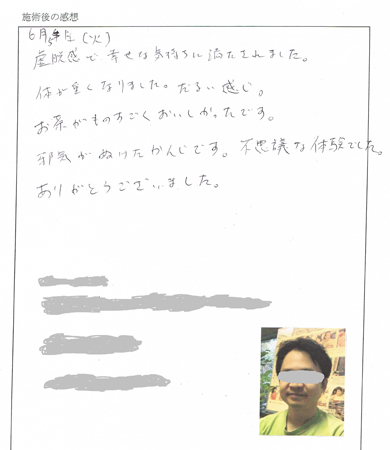 施術後の感想
6月 日(火)
虚脱感で幸せな気持ちに満たされました。
体が重くなりました。だるい感じ。
お茶がものすごくおいしかったです。
邪気がぬけたかんじです。不思議な体験でした。
ありがとうございました。